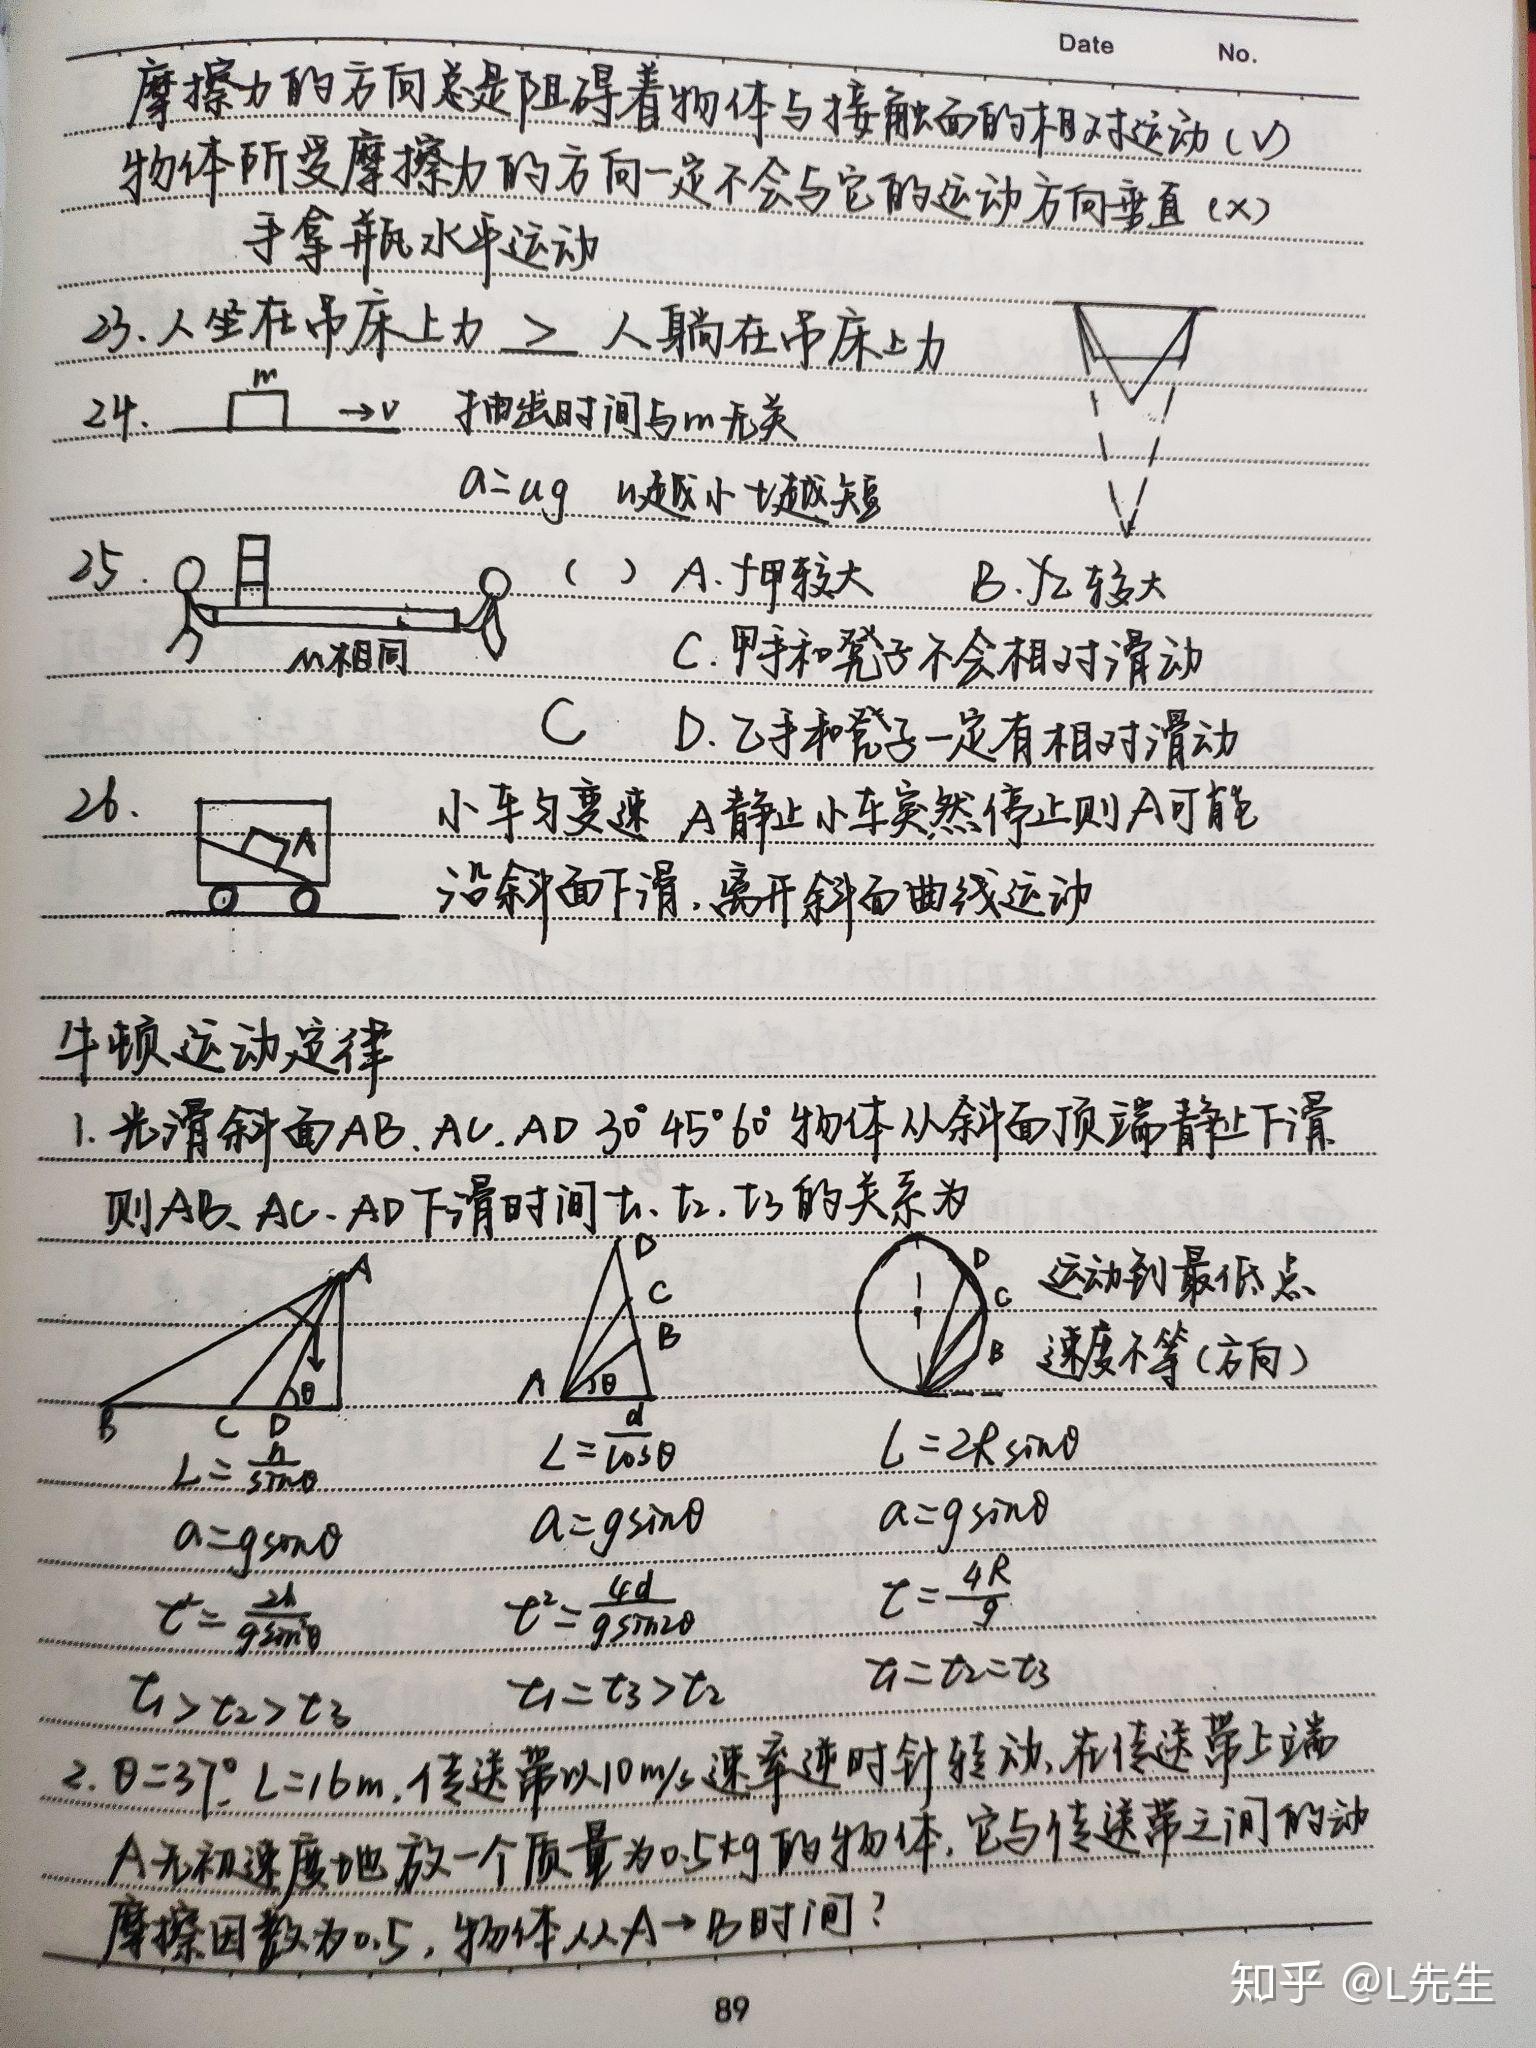 Date No.
摩擦力的方向总是阻碍着物体与接触面的相对运动(√)
物体所受摩擦力的方向一定不会与它的运动方向垂直(×)
手拿瓶水平运动
23.人坐在吊床上力 > 人躺在吊床上力
24. m →v 抽出时间与m无关
a=ug u越小t越短
25. ( ) A.f甲较大 B.f乙较大
m相同 C.甲手和凳子不会相对滑动
C D.乙手和凳子一定有相对滑动
26. A 小车匀变速 A静止小车突然停止则A可能
沿斜面下滑,离开斜面曲线运动
牛顿运动定律
1.光滑斜面AB、AC、AD 30° 45° 60° 物体从斜面顶端静止下滑
则AB、AC、AD下滑时间t1、t2、t3的关系为
A B C D θ
D C B A θ d
D C B 运动到最低点
速度不等(方向)
L=h/sinθ L=d/cosθ L=2Rsinθ
a=gsinθ a=gsinθ a=gsinθ
t²=2h/gsin²θ t²=4d/gsin2θ t=4R/g
t1>t2>t3 t1=t3>t2 t1=t2=t3
2.θ=37°L=16m,传送带以10m/s速率逆时针转动,在传送带上端
A无初速度地放一个质量为0.5kg的物体,它与传送带之间的动
摩擦因数为0.5,物体从A→B时间?
89
知乎 @L先生